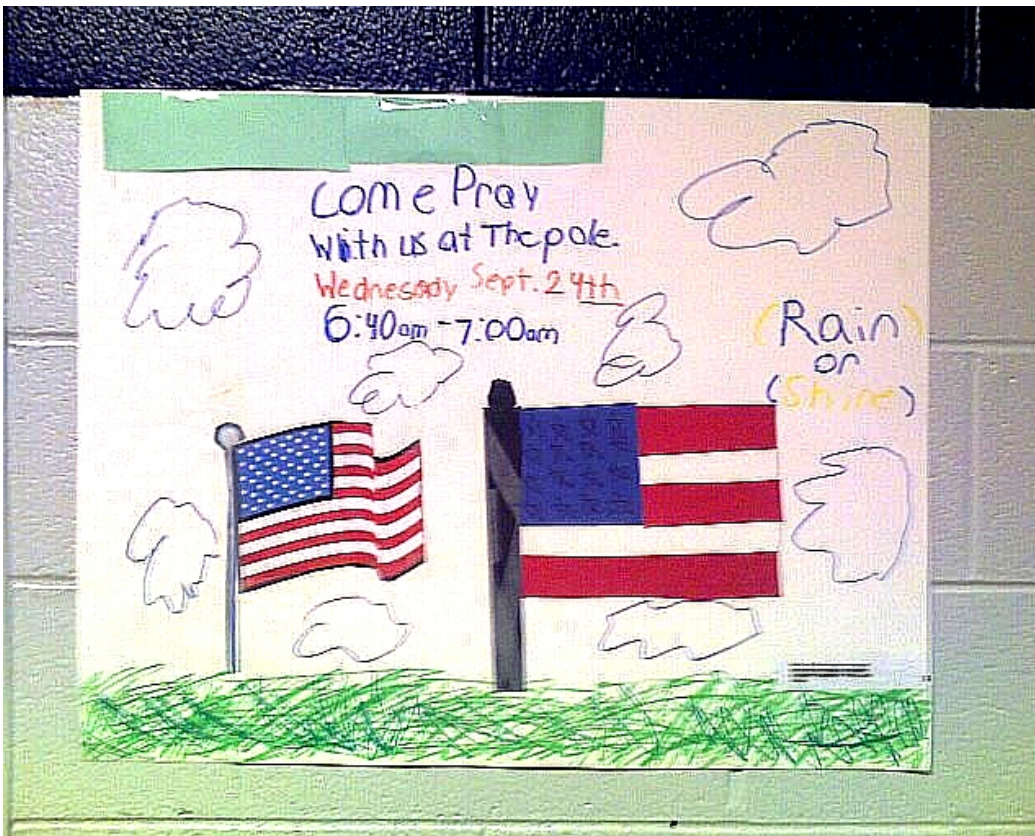 Come Pray
with us at The pole.
Wednesday Sept. 24th
6:40am - 7:00am
(Rain)
or
(Shine)